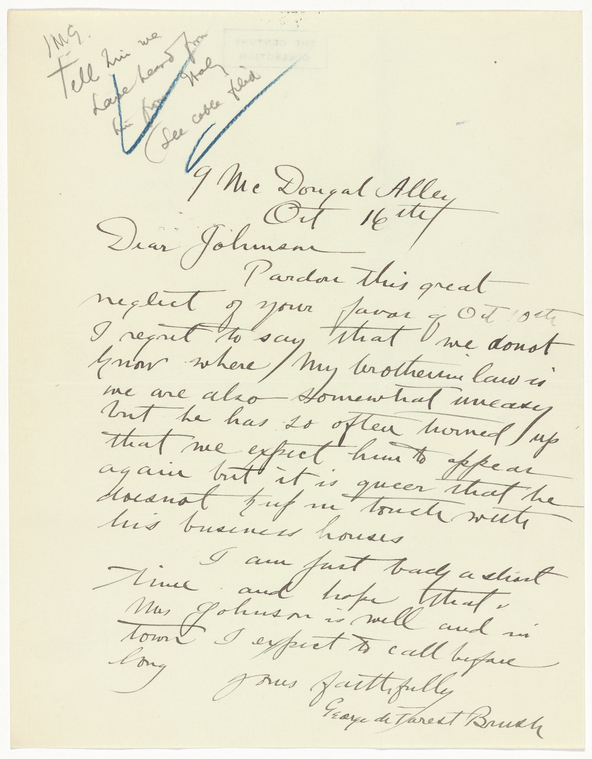 I.M.G.
Tell him we
have heard from
him from Italy
(See cable filed
THE CENTURY
COLLECTION
9 Mc Dougal Alley
Oct 16th
Dear Johnson
Pardon this great
neglect of your favor of Oct 10th
I regret to say that we donot
know where my brotherinlaw is
we are also somewhat uneasy
but he has so often turned up
that we expect him to appear
again but it is queer that he
doesnot keep in touch with
his business houses
I am just back a short
time and hope that
Mrs Johnson is well and in
town I expect to call before
long
yours faithfully
George de Forest Brush